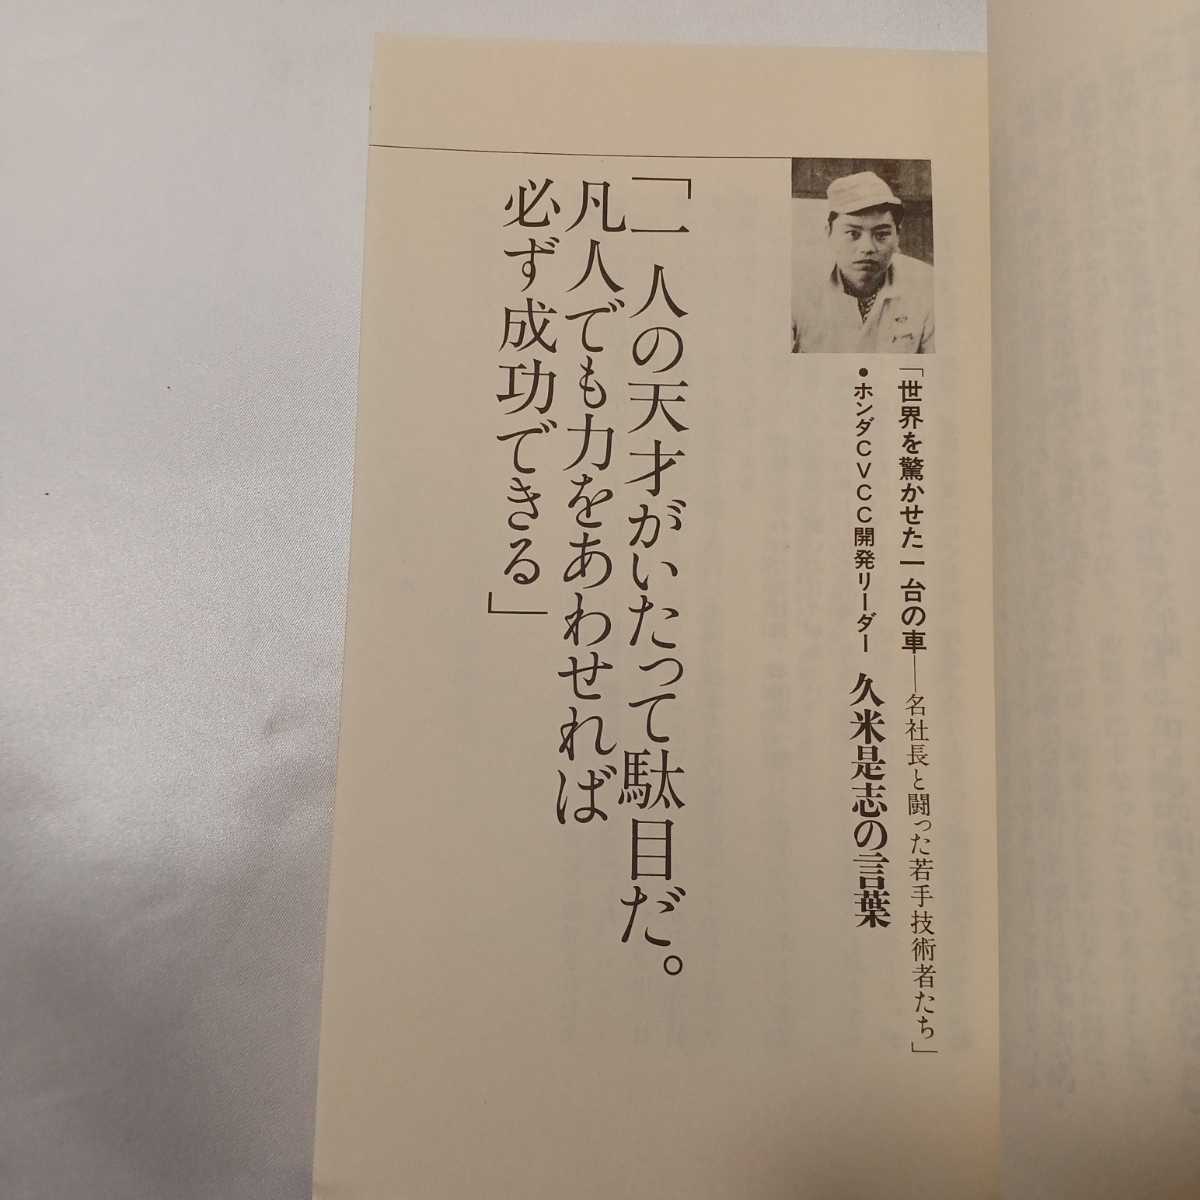 「世界を驚かせた一台の車――名社長と闘った若手技術者たち」
●ホンダCVCC開発リーダー 久米是志の言葉
「一人の天才がいたって駄目だ。
凡人でも力をあわせれば
必ず成功できる」